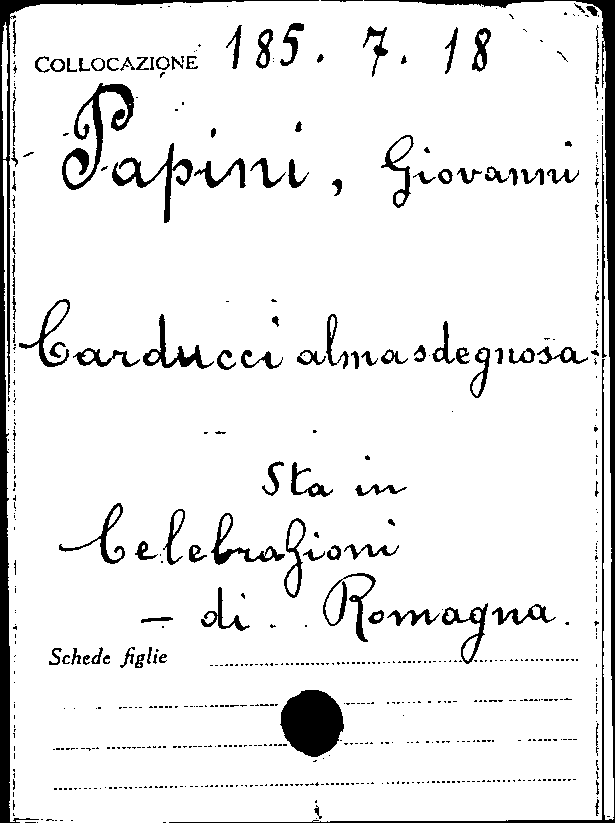 COLLOCAZIONE 185. 7. 18
Papini, Giovanni
Carducci alma sdegnosa.
Sta in
Celebrazioni
- di Romagna.
Schede figlie